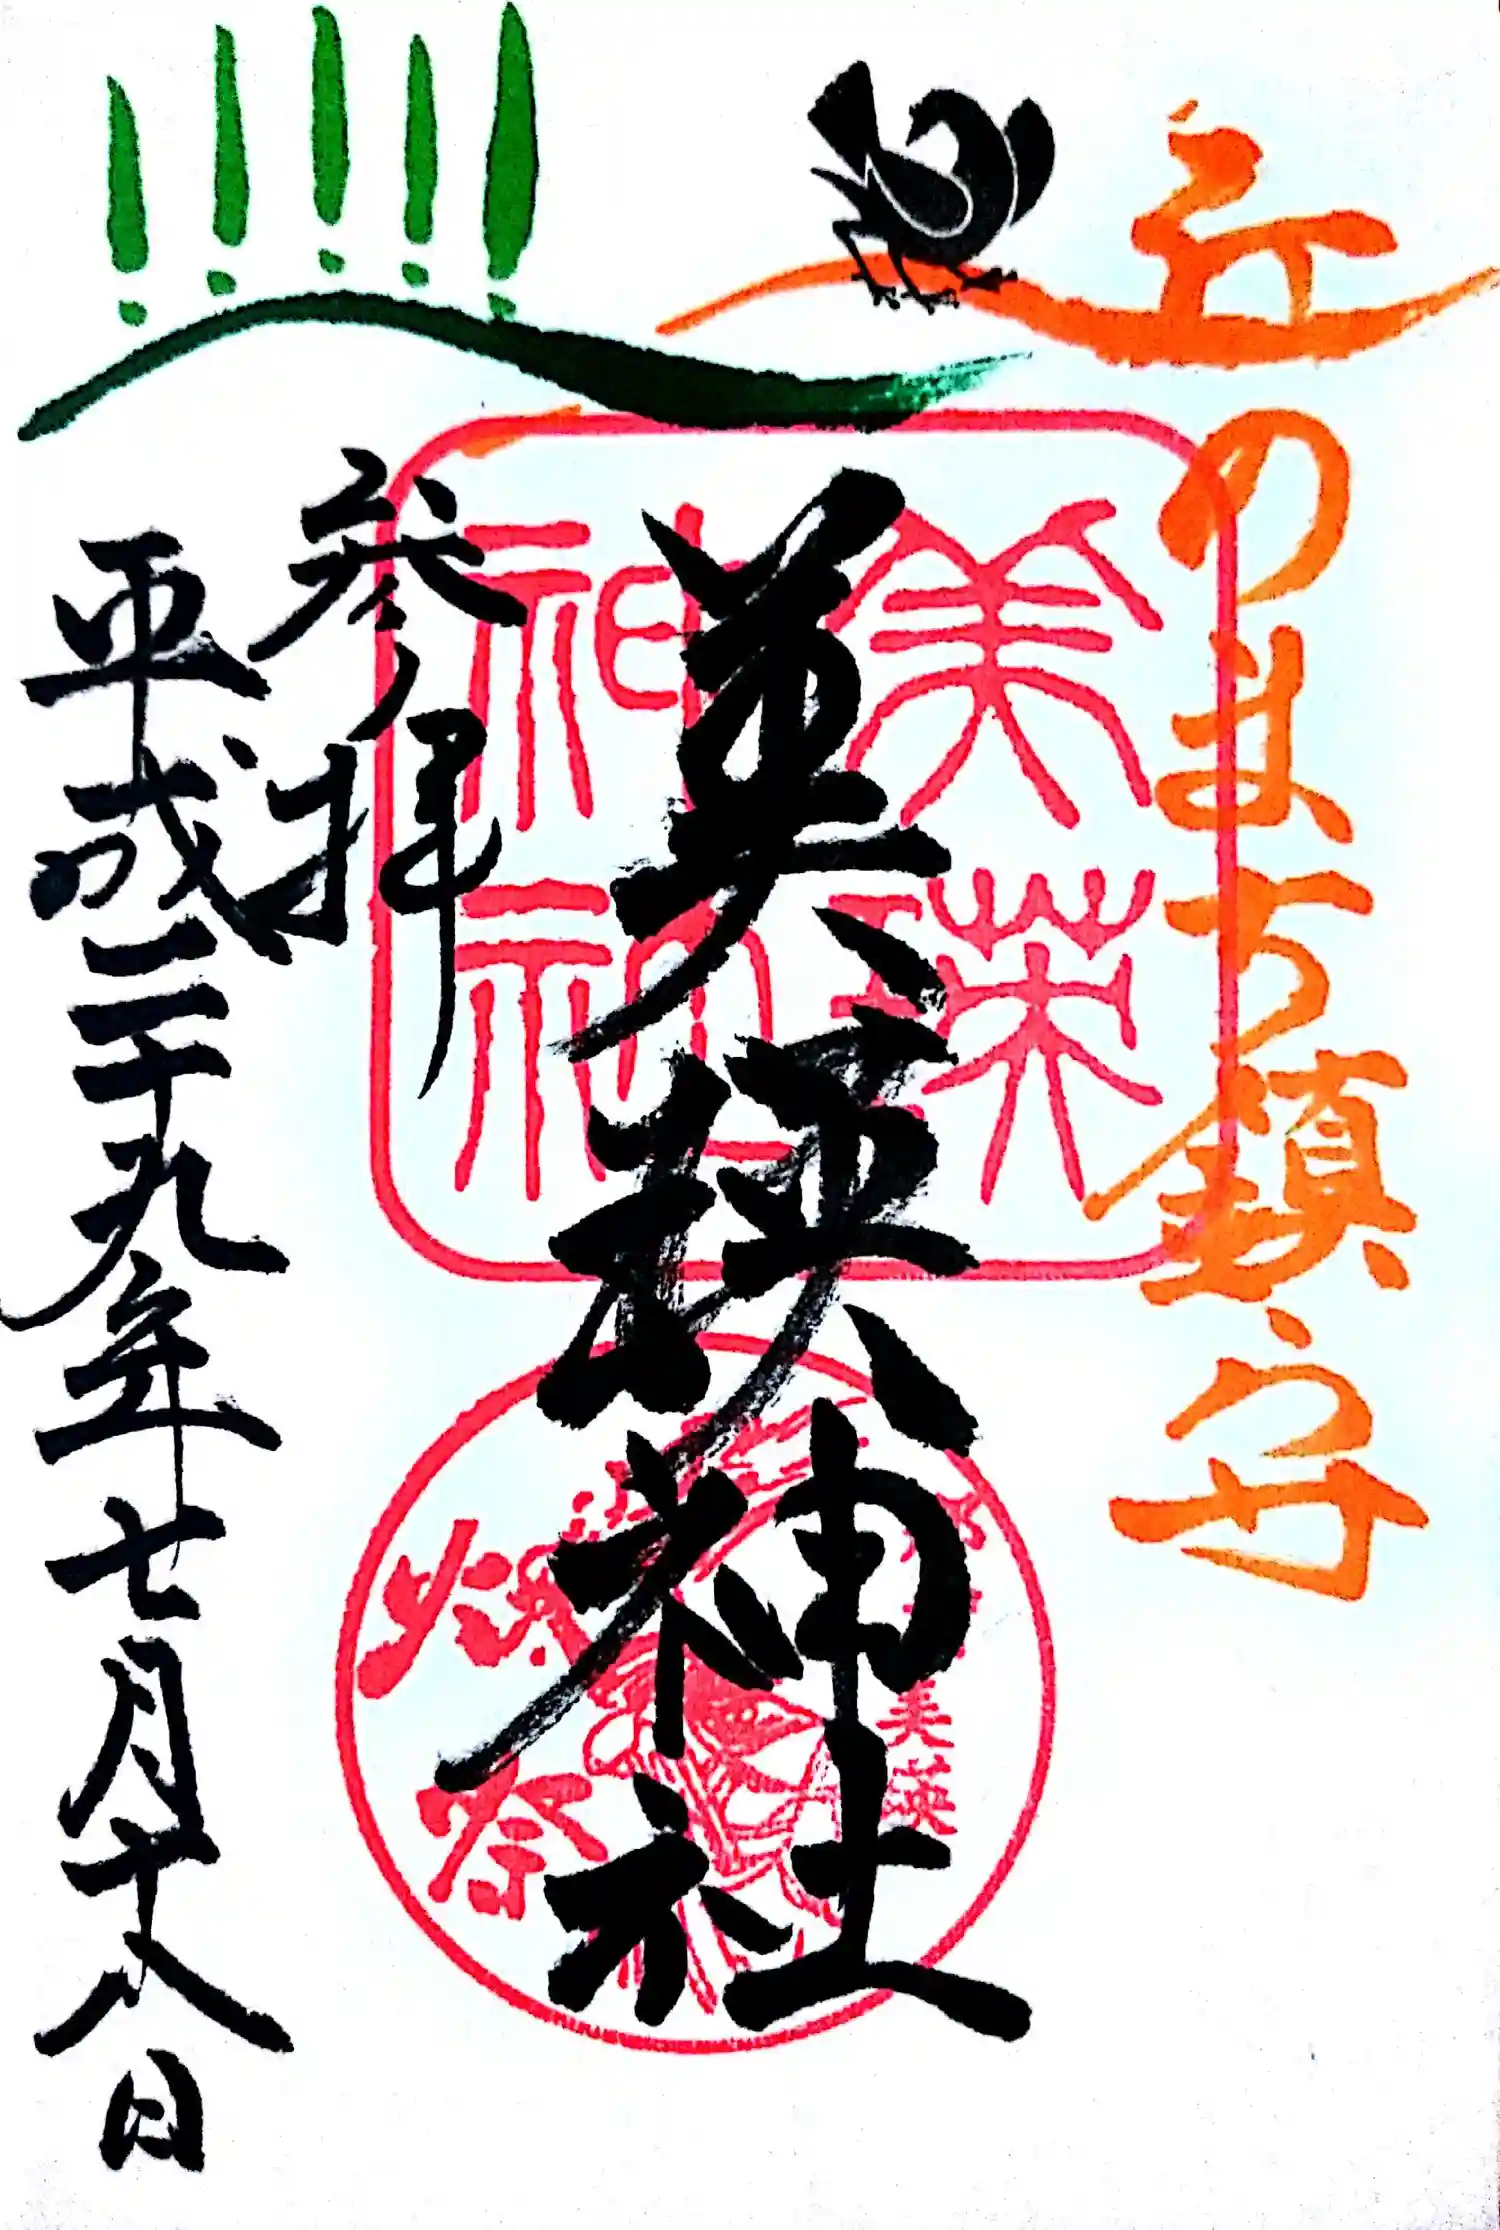 丘のまち鎮守
美瑛神社
参拝
平成二十九年七月十八日
美瑛
神社
美瑛
祭